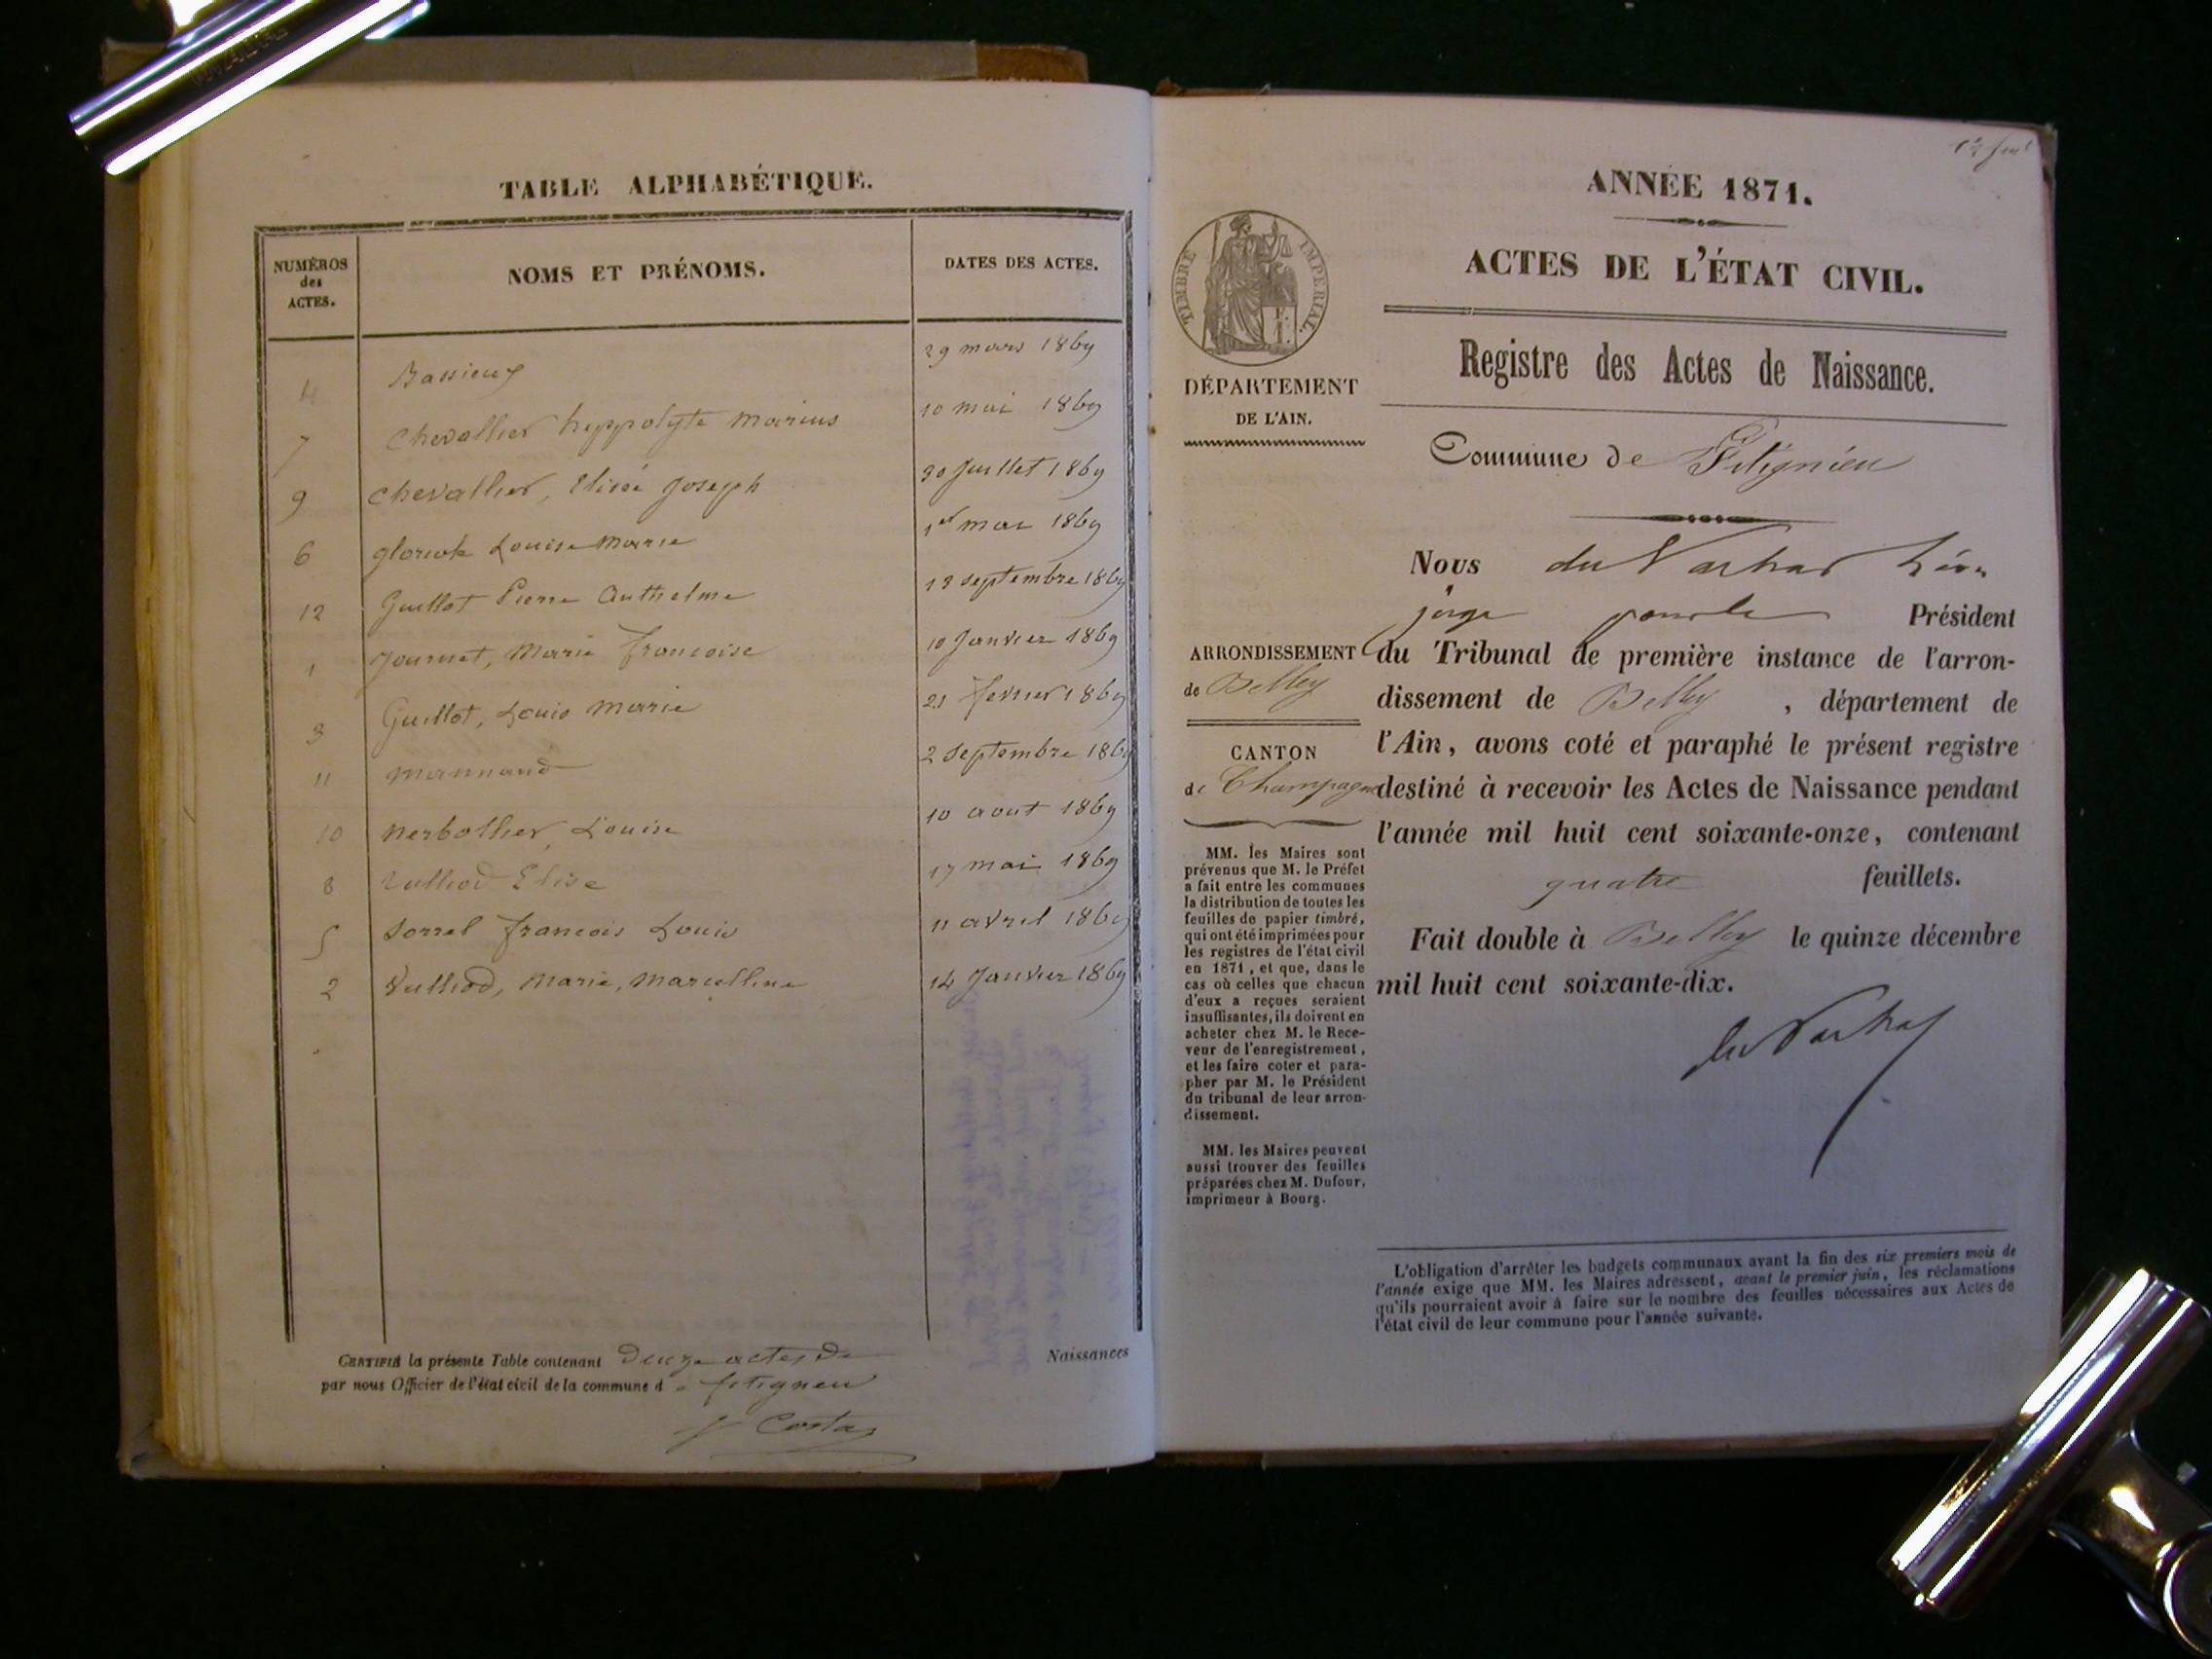 TABLE ALPHABÉTIQUE.
NUMÉROS des ACTES. NOMS ET PRÉNOMS. DATES DES ACTES.
4 Bassieux 29 mars 1869
7 Chevallier hyppolyte Marius 10 mai 1869
9 Chevallier, Elisée Joseph 30 Juillet 1869
6 Louise Marie 1er mai 1869
12 Guillot Pierre Anthelme 12 septembre 1869
1 Journet, Marie françoise 10 Janvier 1869
3 Guillot, Louis Marie 21 fevrier 1869
11 Monnand 2 Septembre 1869
10 Nerbollier, Louise 10 aout 1869
8 Elise 17 mai 1869
5 Sorrel françois Louis 11 avril 1869
2 Vulliod, Marie, Marcelline 14 Janvier 1869
CERTIFIÉ la présente Table contenant douze actes de Naissances
par nous Officier de l'état civil de la commune de fitignieu
Costaz
ANNÉE 1871.
ACTES DE L'ÉTAT CIVIL.
Registre des Actes de Naissance.
Commune de Fitignieu
TIMBRE IMPÉRIAL.
DÉPARTEMENT
DE L'AIN.
ARRONDISSEMENT
de Belley
CANTON
de Champagne
MM. les Maires sont
prévenus que M. le Préfet
a fait entre les communes
la distribution de toutes les
feuilles de papier timbré,
qui ont été imprimées pour
les registres de l'état civil
en 1871, et que, dans le
cas où celles que chacun
d'eux a reçues seraient
insuffisantes, ils doivent en
acheter chez M. le Rece-
veur de l'enregistrement,
et les faire coter et para-
pher par M. le Président
du tribunal de leur arron-
dissement.
MM. les Maires peuvent
aussi trouver des feuilles
préparées chez M. Dufour,
imprimeur à Bourg.
Nous Léon
juge pour le Président
du Tribunal de première instance de l'arron-
dissement de Belley, département de
l'Ain, avons coté et paraphé le présent registre
destiné à recevoir les Actes de Naissance pendant
l'année mil huit cent soixante-onze, contenant
quatre feuillets.
Fait double à Belley le quinze décembre
mil huit cent soixante-dix.
L'obligation d'arrêter les budgets communaux avant la fin des six premiers mois de
l'année exige que MM. les Maires adressent, avant le premier juin, les réclamations
qu'ils pourraient avoir à faire sur le nombre des feuilles nécessaires aux Actes de
l'état civil de leur commune pour l'année suivante.